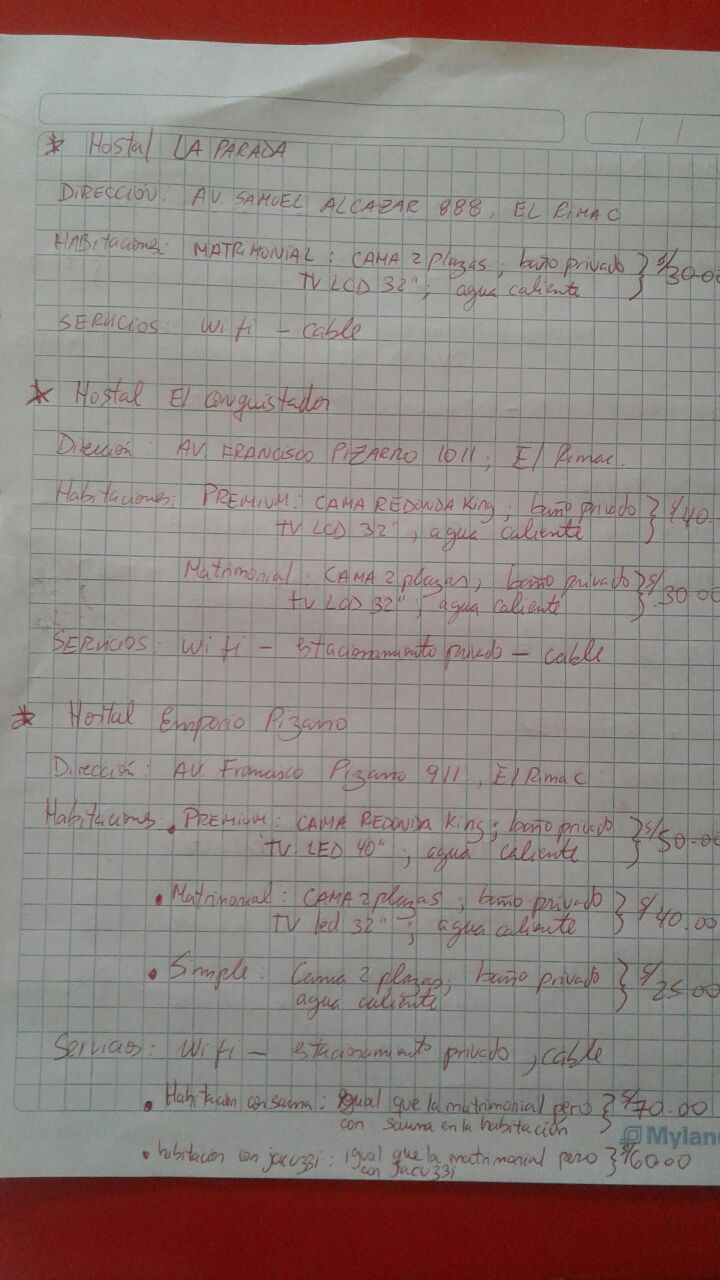 * Hostal LA PARADA
DIRECCIÓN: AV. SAMUEL ALCAZAR 888, EL RIMAC
HABitaciones: MATRIMONIAL: CAMA 2 plazas; baño privado } S/30.00
TV LCD 32"; agua caliente
SERVICIOS: Wifi - cable
* Hostal El Conquistador
Dirección: AV. FRANCISCO PIZARRO 1011; El Rimac.
Habitaciones: PREMIUM: CAMA REDONDA King; baño privado } S/40.
TV LCD 32", agua caliente
Matrimonial: CAMA 2 plazas; baño privado } S/.30.00
TV LCD 32"; agua caliente
SERVICIOS: Wifi - estacionamiento privado - cable
* Hostal Emporio Pizarro
Dirección: AV. Francisco Pizarro 911, El Rimac
Habitaciones • PREMIUM: CAMA REDONDA King; baño privado } S/50.00
TV. LED 40"; agua caliente
• Matrimonial: CAMA 2 plazas; baño privado } S/40.00
TV led 32"; agua caliente
• Simple: Cama 2 plazas; baño privado } S/25.00
agua caliente
Servicios: Wifi - estacionamiento privado, cable
• Habitación con sauna: igual que la matrimonial pero } S/70.00
con sauna en la habitación
Mylan
• habitación con jacuzzi: igual que la matrimonial pero } S/60.00
con jacuzzi